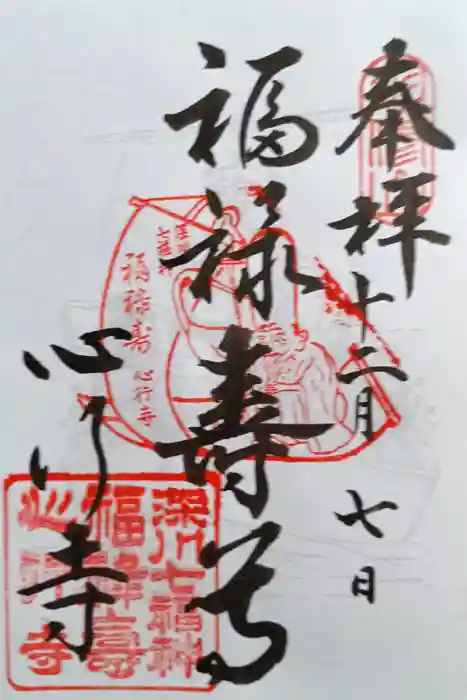 奉拝
十二月 七日
福禄寿尊
心行寺
福禄寿 心行寺
深川七福神
福禄寿
心行寺